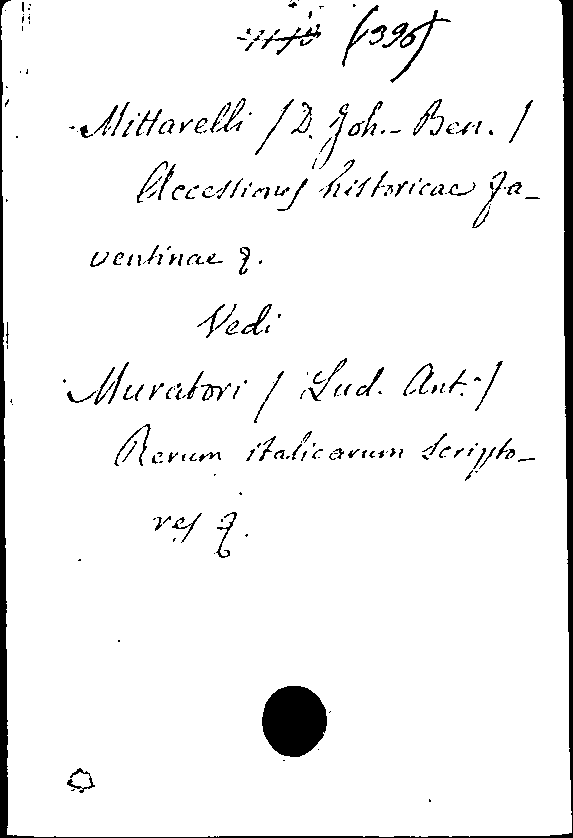 (1396)
Mittarelli / D. Joh.- Ben. /
Accessiones historicae Fa-
ventinae &.
Vedi
Muratori / Lud. Ant. /
Rerum italicarum Scripto-
res &.